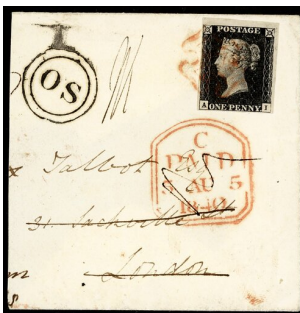 OS
POSTAGE
A I
ONE PENNY
C
PAID
AU 5
1840
Talbot Esq
31. Sackville St
London